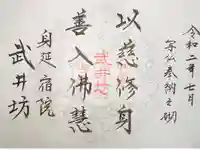 令和二年七月
写仏奉納之砌
以慈修身
善入佛慧
武井坊
身延宿院
武井坊